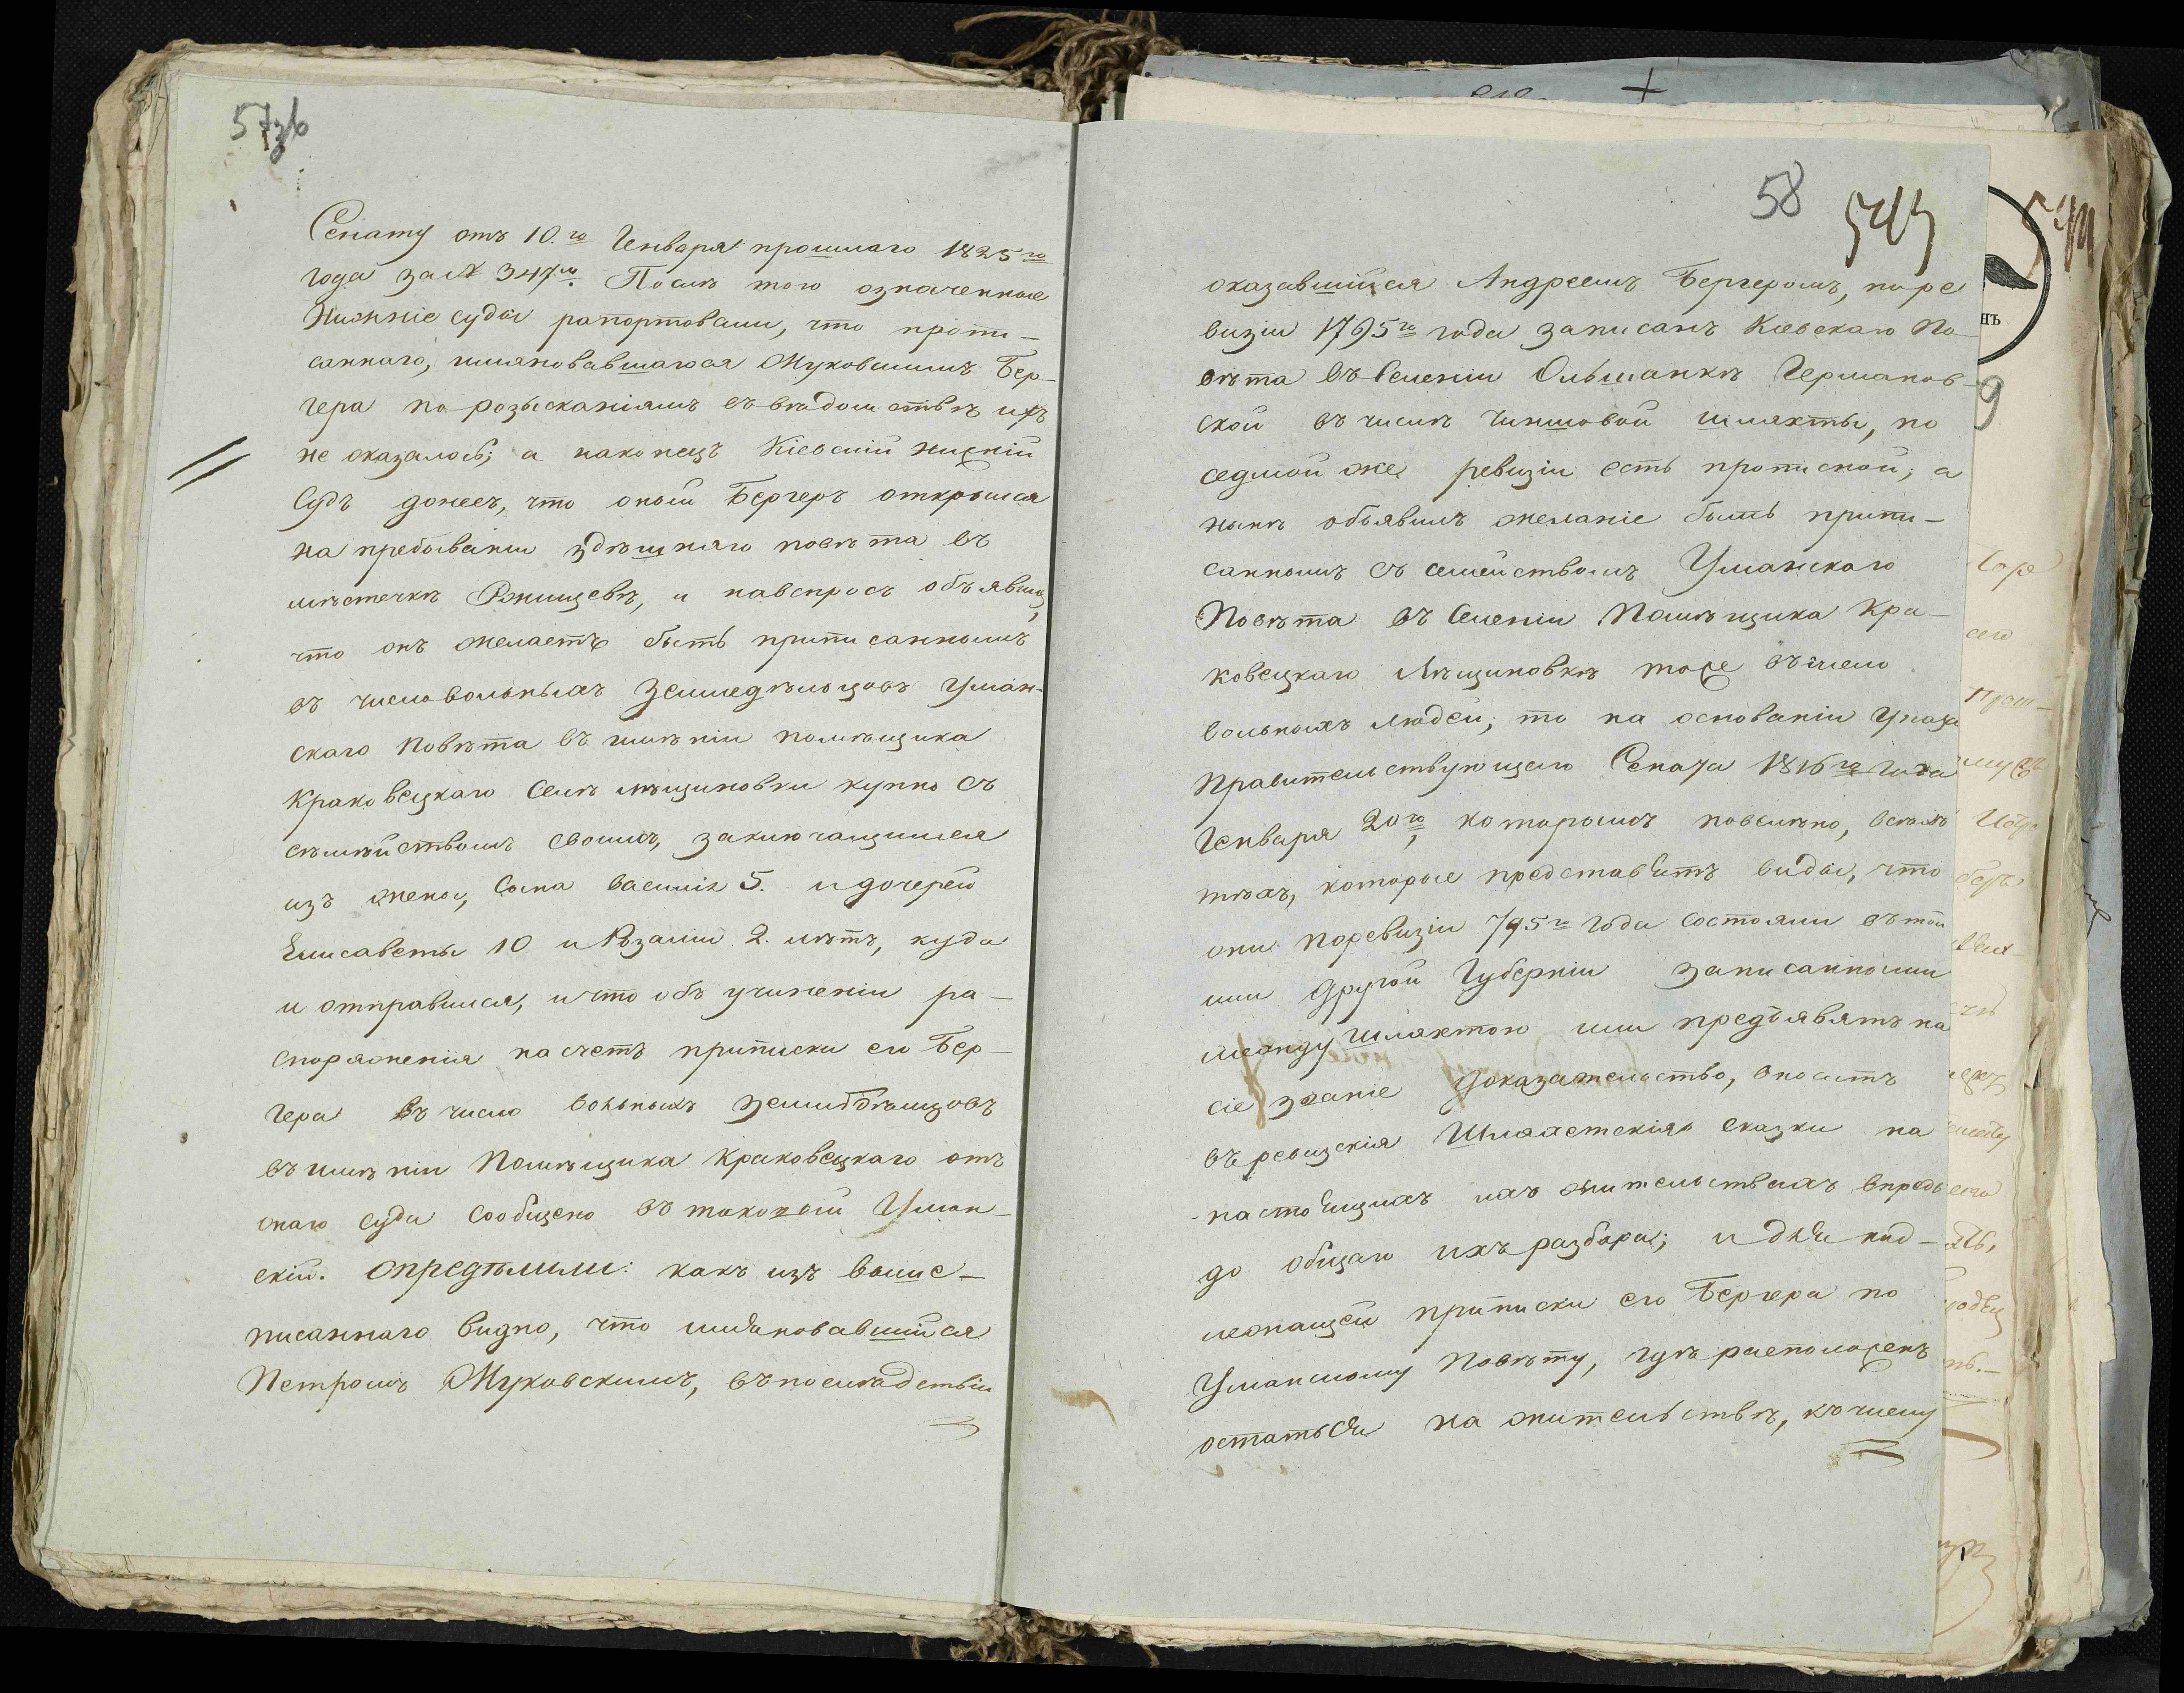 57зв
Сенату отъ 10.го Генваря прошлаго 1825го
года за № 347м. Послѣ того означенные
Нижніе суды рапортовали, что пропи-
саннаго, имяновавшагося Жуковскимъ Бер-
гера по розысканіямъ въ вѣдомствѣ ихъ
не оказалось; а наконецъ Кіевскій нижній
Судъ донесъ, что оный Бергеръ открылся
на пребываніи здѣшняго повѣта въ
мѣстечкѣ Ржищевѣ, и навспросъ объявилъ,
что онъ желаетъ быть приписаннымъ
въ число вольныхъ Земледѣльцовъ Уман-
скаго повѣта въ имѣніи помѣщика
Краковецкаго Селѣ мѣщиновки купно съ
сѣмѣйствомъ своимъ, заключающимся
изъ жены, Сына Василія 5. и дочерей
Елисаветы 10 и Розаліи 2. лѣтъ, куда
и отправился, и что объ учиненіи ра-
споряженія насчетъ приписки его Бер-
гера въ число вольныхъ земледѣльцовъ
въ имѣніи Помѣщика Краковецкаго отъ
онаго суда сообщено въ таковый Уман-
скій. Опредѣлили: какъ изъ выше-
писаннаго видно, что имяновавшійся
Петромъ Жуковскимъ, въ послѣдствіи
58 543
оказавшійся Андреемъ Бергеромъ, поре
визіи 1795го года записанъ Кіевскаго По-
вѣта въ Селеніи Ольшанкѣ Германов-
ской въ числѣ Чиншовой шляхты, по
седмой же ревизіи есть прописной; а
нынѣ объявилъ желаніе быть припи-
саннымъ съ семействомъ Уманскаго
Повѣта въ Селеніи Помѣщика Кра-
ковецкаго Мѣщиновкѣ тоже въ число
вольныхъ людей; то на основаніи Указа
Правительствующаго Сената 1816го года
Генваря 20го, которымъ повелѣно, всѣхъ
тѣхъ, которые представятъ виды, что
они поревизіи 795го года состояли въ той
или другой Губерніи записанными
между шляхтою или предъявятъ на
сіе званіе доказательство, вносить
въ ревизскія Шляхетскія сказки на
настоящихъ ихъ жительствахъ впредь
до общаго ихъ разбора; и для над-
лежащей приписки его Бергера по
Уманскому Повѣту, гдѣ расположенъ
остаться на жительствѣ, къ числу